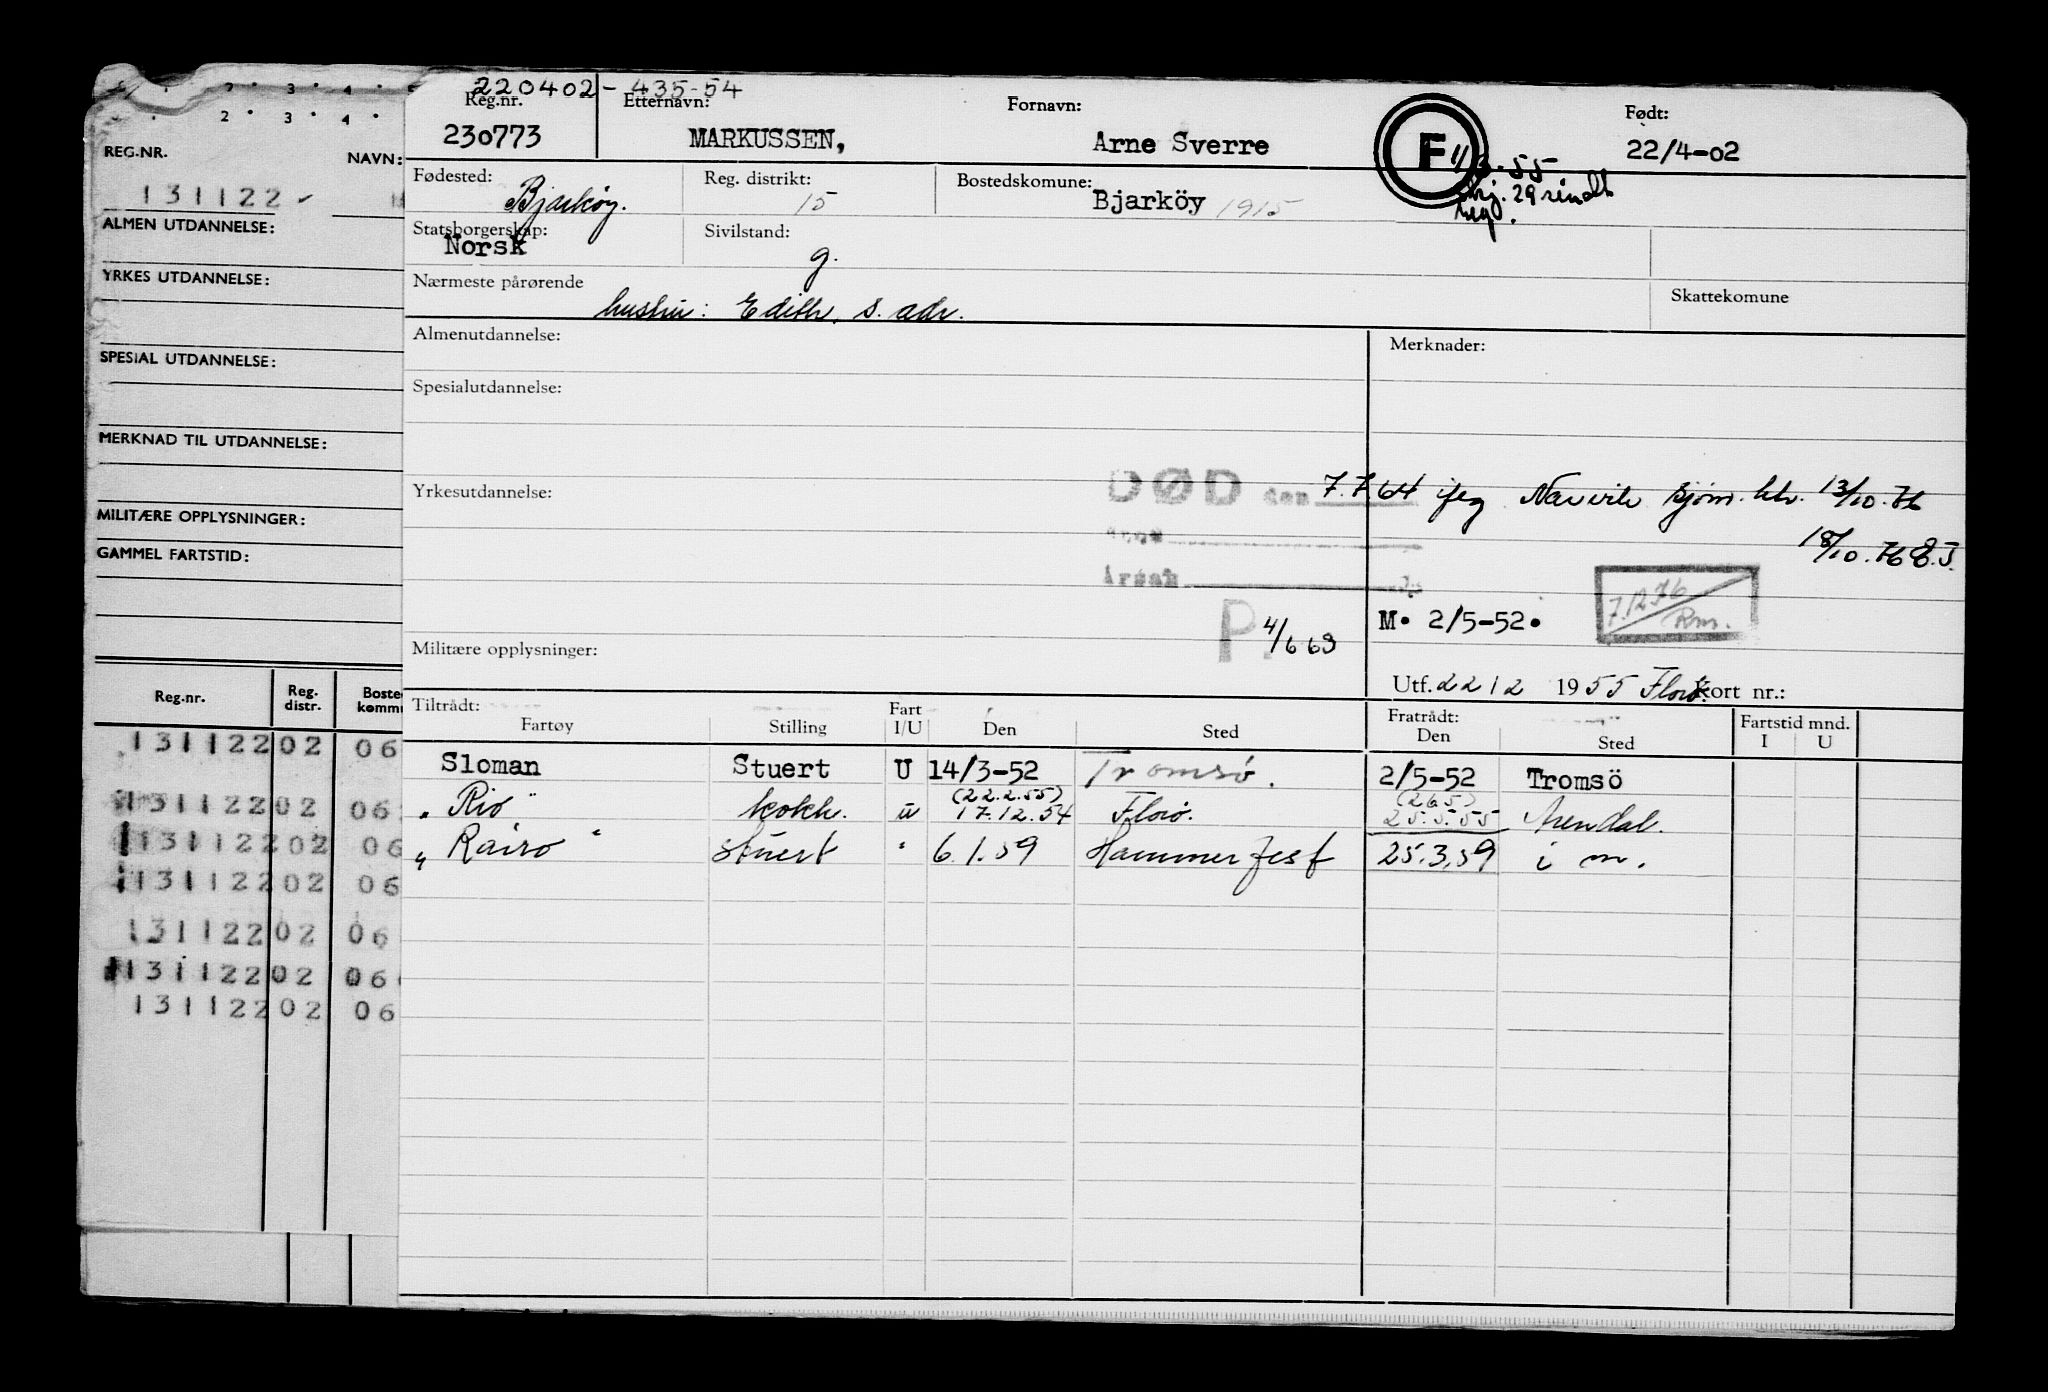 220402-435-54
Reg.nr. Etternavn: Fornavn: Født:
230773 MARKUSSEN, Arne Sverre F 22/4-02
Fødested: Reg. distrikt: Bostedskomune:
Bjarköy. 15 Bjarköy 1915
Statsborgerskap: Sivilstand:
Norsk g.
Nærmeste pårørende Skattekomune
hustru: Edith, s. adr.
Almenutdannelse: Merknader:
Spesialutdannelse:
Yrkesutdannelse:
DØD den 7.7.64 Narvik sjöm. ktr. 13/10.76
18/10.76
Årsak
7.12.76
Rm.
P. 4/6 63 M. 2/5-52.
Militære opplysninger:
Utf. 22 12 1955 Florö Kort nr.:
Tiltrådt: Fart Fratrådt: Fartstid mnd.
Fartøy Stilling I/U Den Sted Den Sted I U
Sloman Stuert U 14/3-52 Tromsö. 2/5-52 Tromsö
(22.2.55) (26.5)
" Rio " kokk. u 17.12.54 Florö. 25.5.55 Arendal.
" Rairo " stuert " 6.1.59 Hammerfest 25.3.59 i m.
2 3 4
2 3 4
REG.NR. NAVN:
131122
ALMEN UTDANNELSE:
YRKES UTDANNELSE:
SPESIAL UTDANNELSE:
MERKNAD TIL UTDANNELSE:
MILITÆRE OPPLYSNINGER:
GAMMEL FARTSTID:
Reg.nr. Reg. distr. Boste kommu
131122 02 06
131122 02 06
131122 02 06
131122 02 06
131122 02 06
131122 02 06
131122 02 06